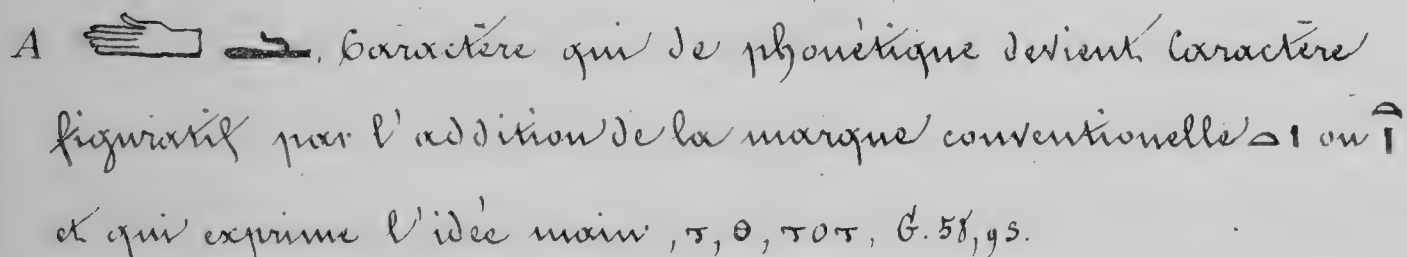 A 𓂧 𓂧. Caractère qui de phonétique devient Caractère
figuratif par l'addition de la marque conventionelle 𓏏𓏤 ou 𓏏𓏤
et qui exprime l'idée main, ⲧ, ⲑ, ⲧⲟⲧ, G. 58, 93.